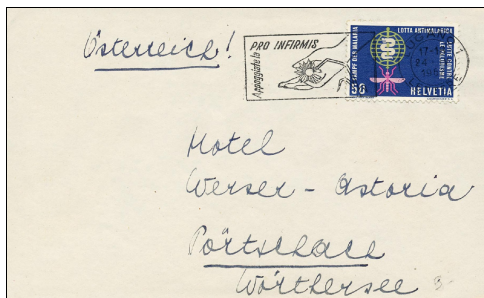 Österreich!
PRO INFIRMIS
Appoggiate la
LOTTA ANTIMALARICA
KAMPF DER MALARIA
LUTTE CONTRE
LE PALUDISME
50
HELVETIA
17-1
24
Hotel
Werser - Astoria
Pörtschach
Wörthersee